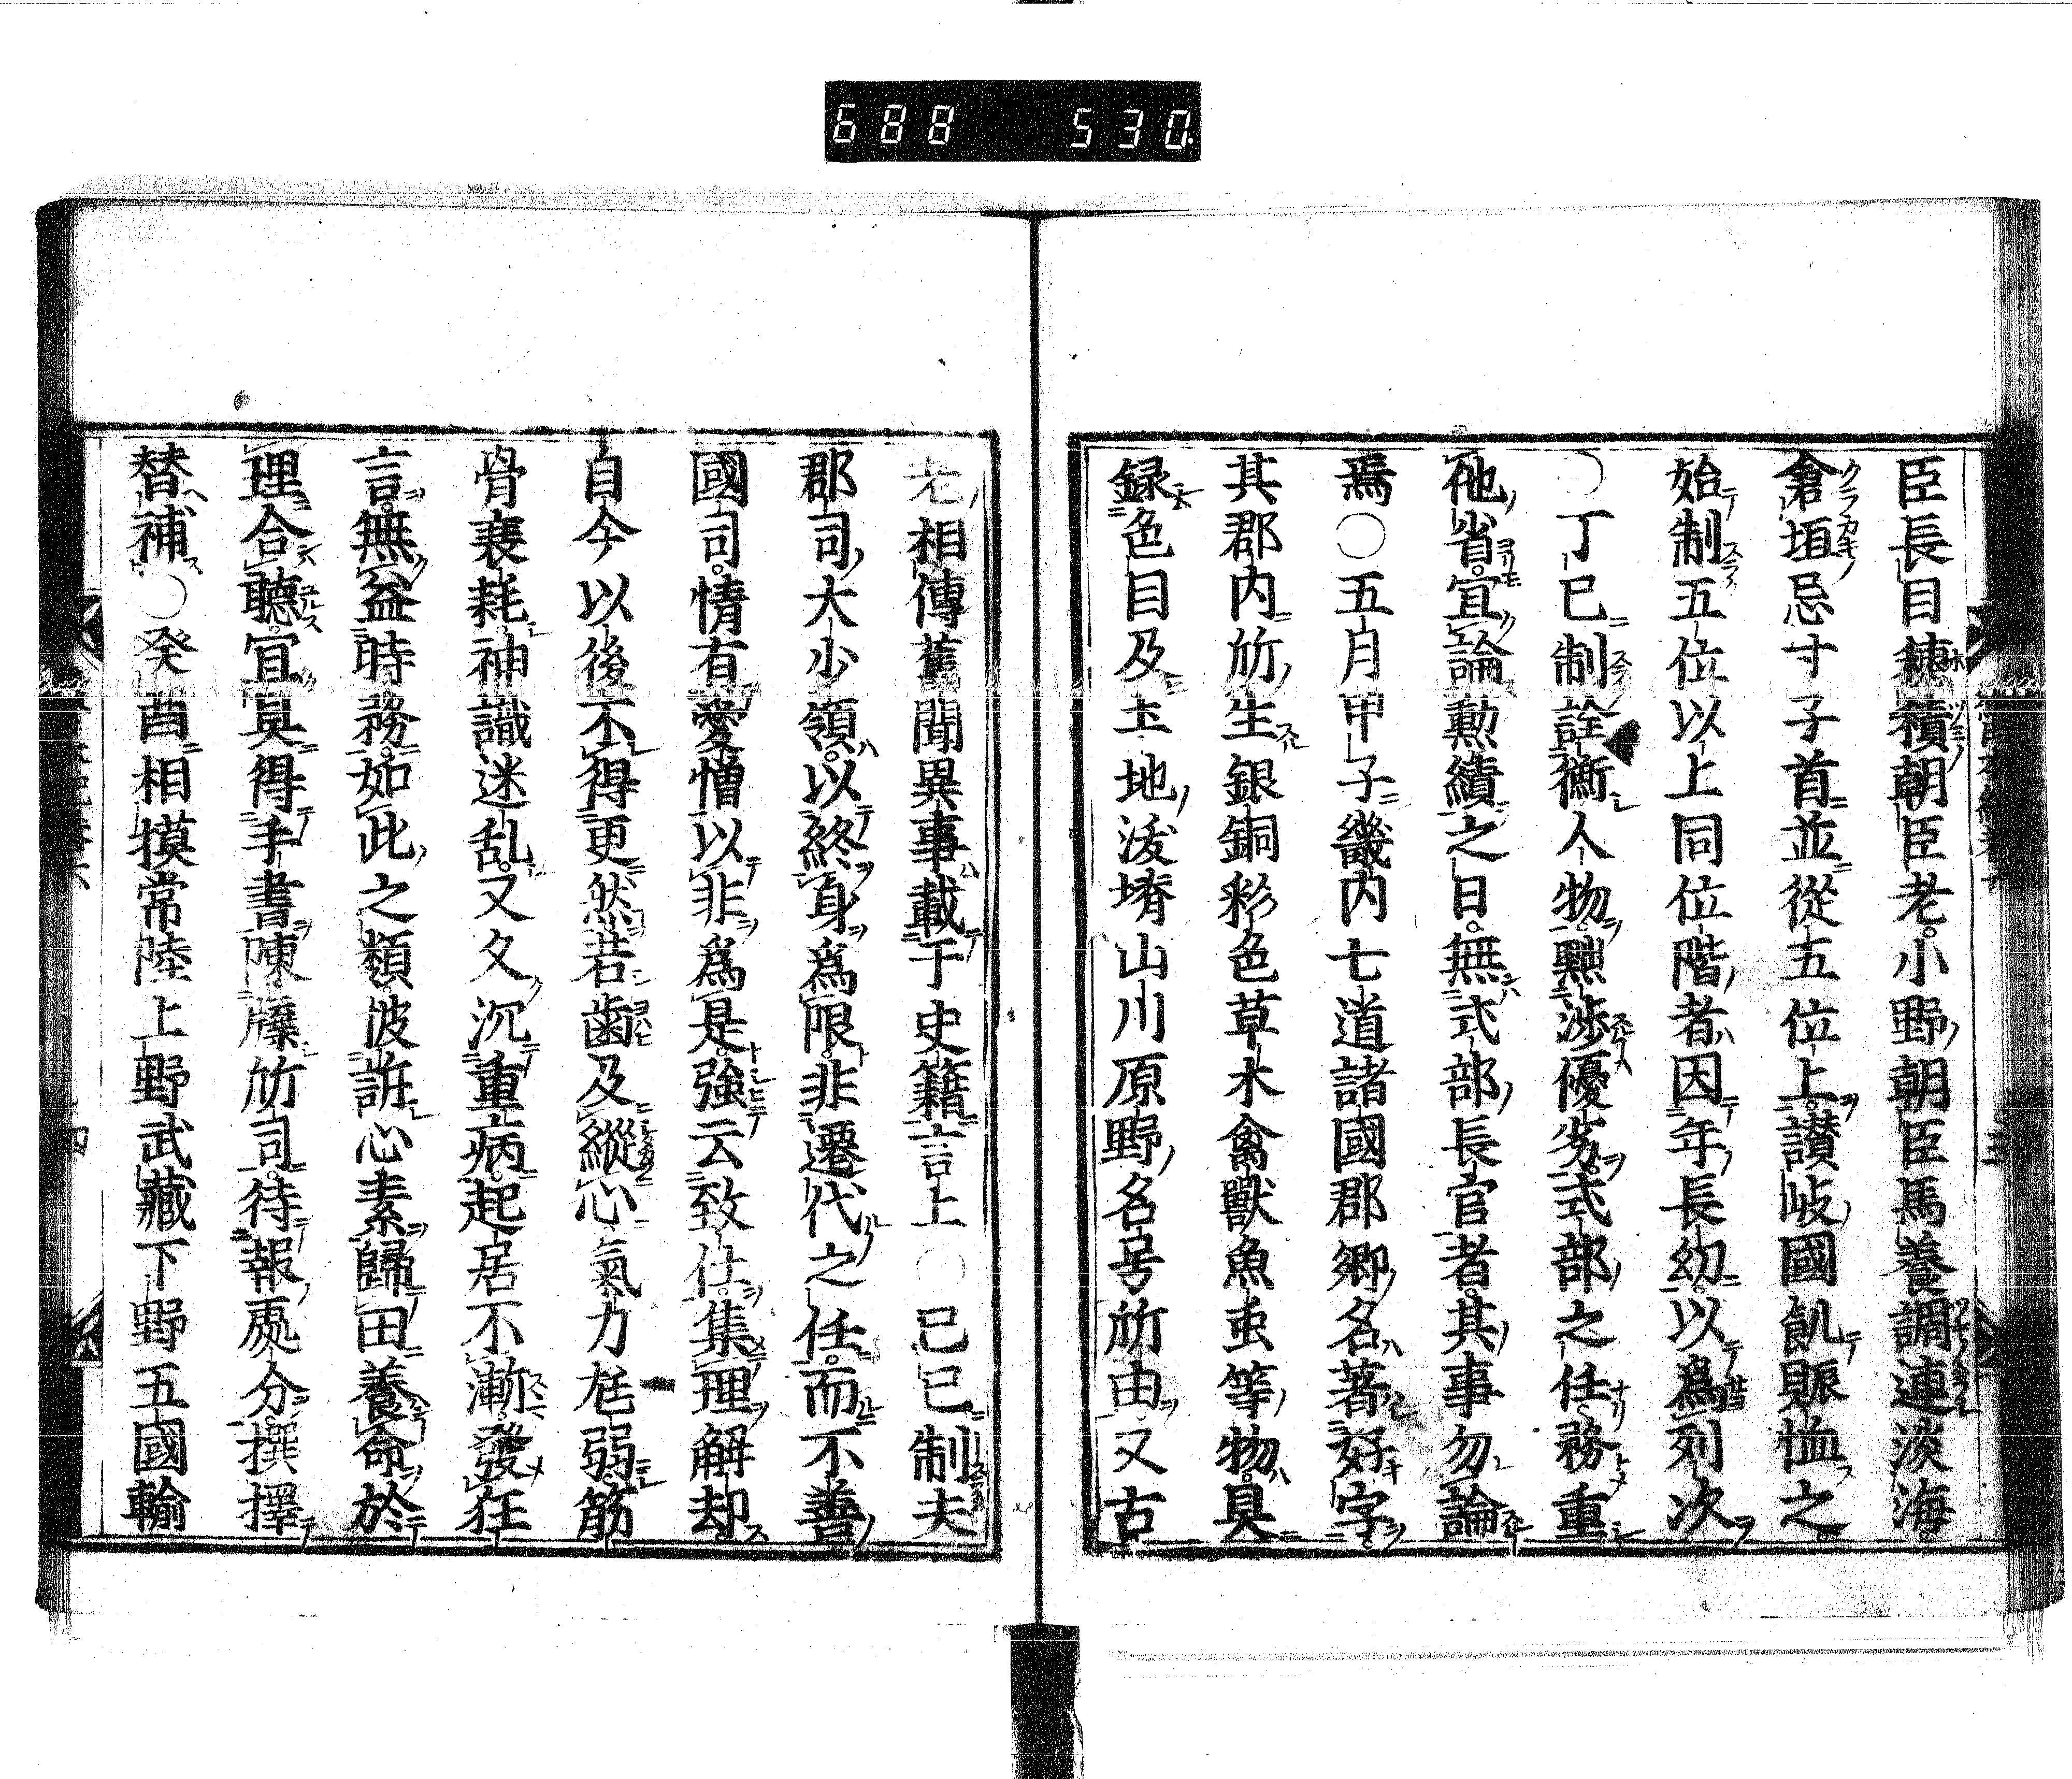 688 530
臣長目穗積朝臣老小野朝臣馬養調連淡海
倉垣忌寸子首並從五位上讃岐國飢賑恤之
始制五位以上同位階者因年長幼以爲列次
○丁巳制詮衡人物黜渉優劣式部之任務重
他省宜論勲績之日無式部長官者其事勿論
焉○五月甲子畿内七道諸國郡郷名著好字
其郡内所生銀銅彩色草木禽獸魚虫等物具
録色目及土地沃塉山川原野名号所由又古
老相傳舊聞異事載于史籍言上○己巳制夫
郡司大少領以終身爲限非遷代之任而不善
國司情有愛憎以非爲是強云致仕集理解却
自今以後不得更然若齒及縱心氣力尪弱筋
骨衰耗神識迷乱又久沉重病起居不漸發狂
言無益時務如此之類披訴心素歸田養命於
理合聽宜具得手書陳牒所司待報處分撰擇
替補○癸酉相摸常陸上野武藏下野五國輸